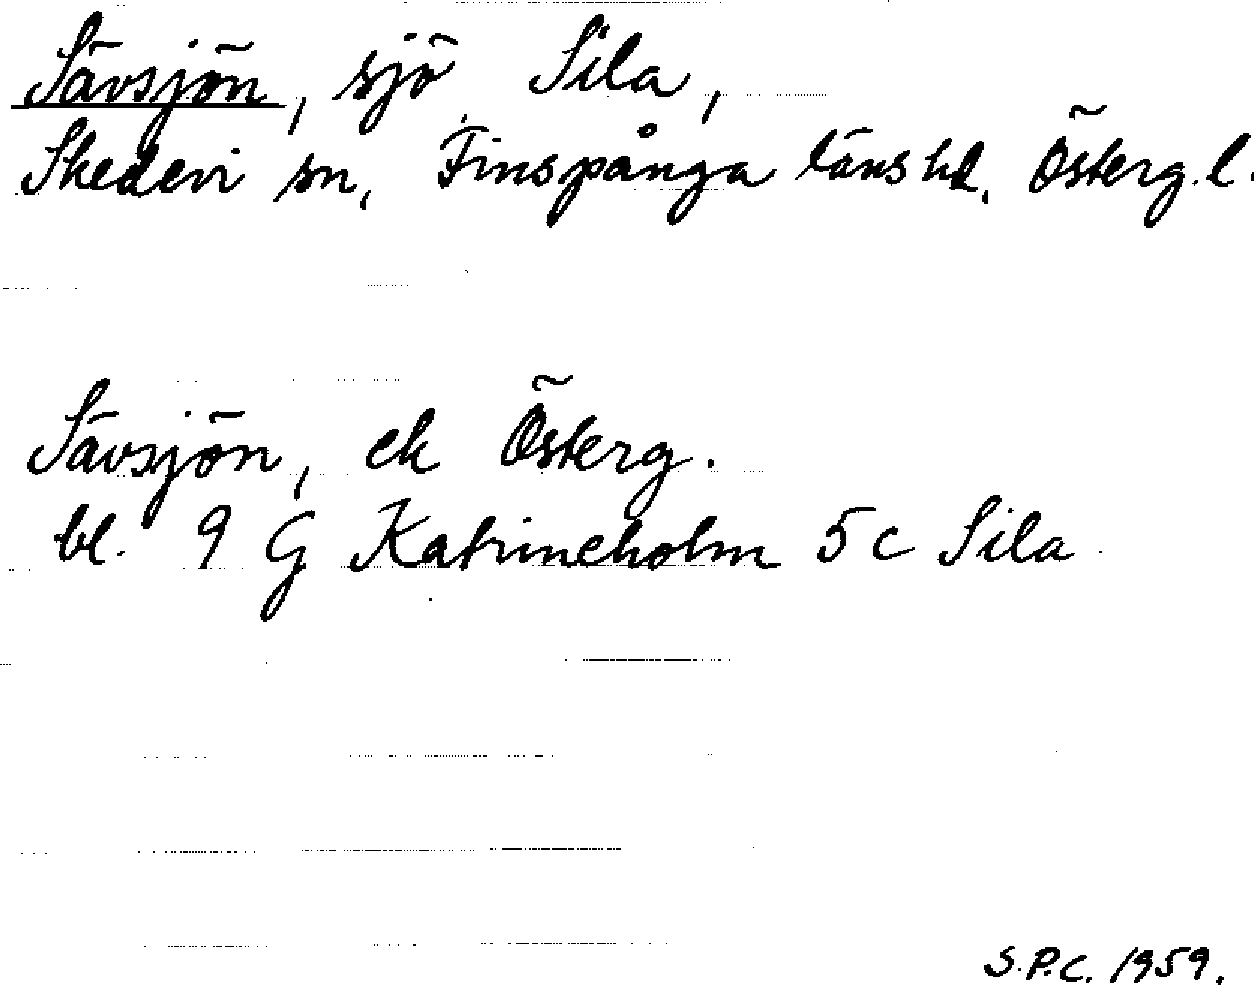 Sävsjön, sjö Sila,
Skedevi sn, Finspånga läns hd. Österg. l.
Sävsjön, ek Österg.
bl. 9 G Katrineholm 5c Sila
S.P.C. 1959.